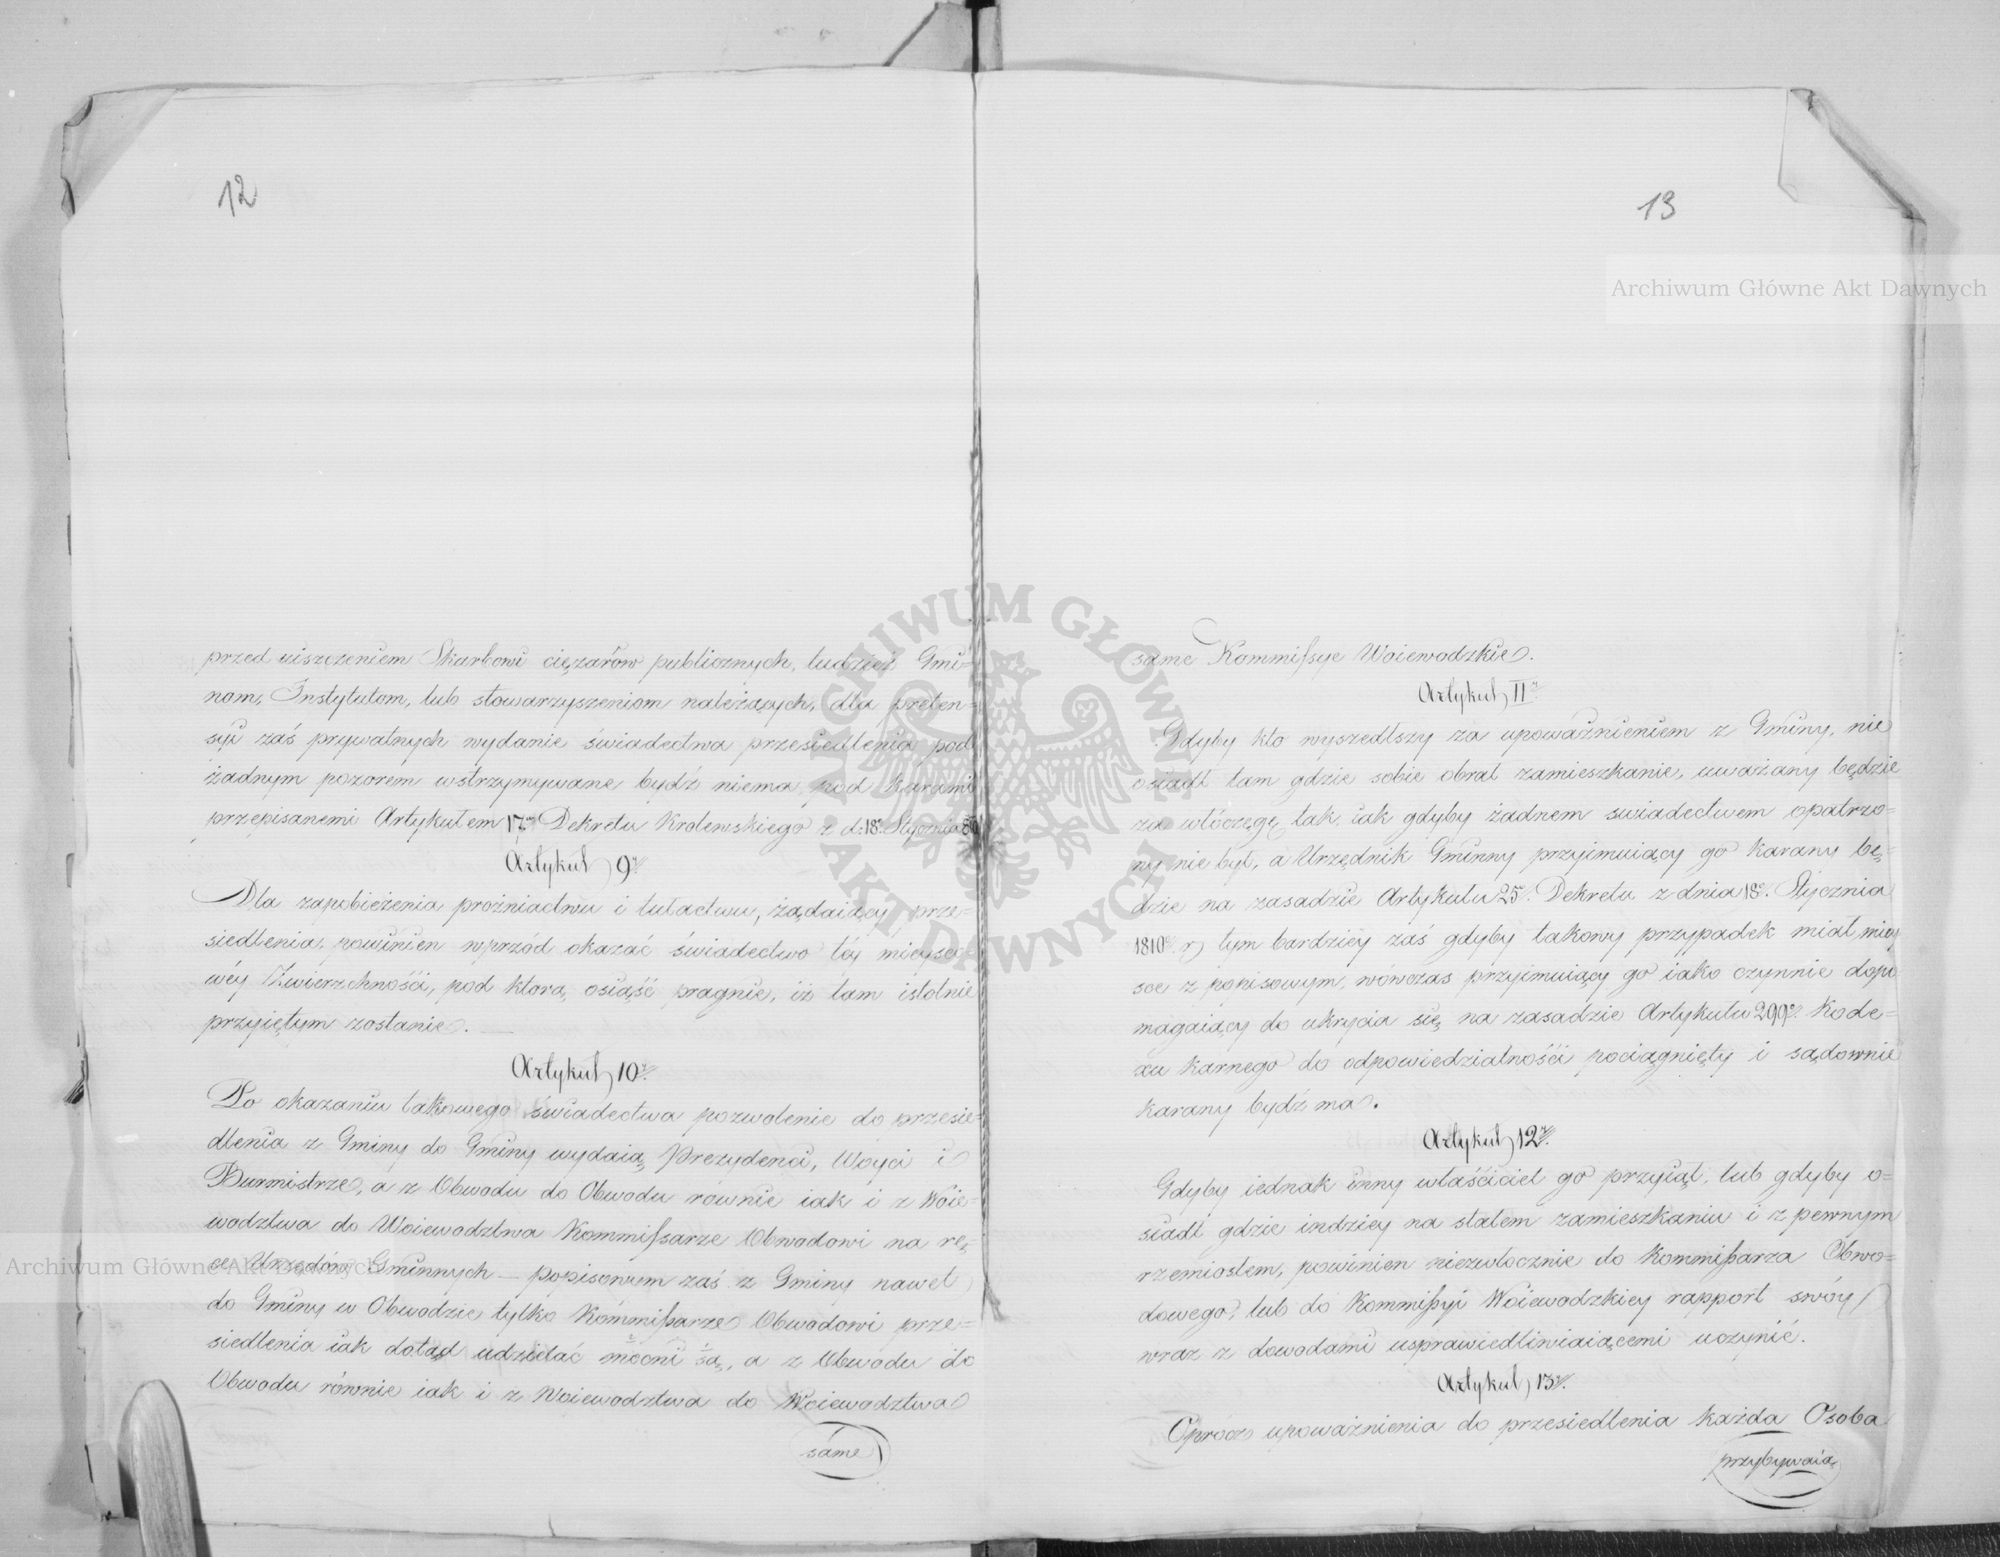 12
przed uiszczeniem Skarbowi ciężarów publicznych, tudzież Gmi-
nom, Instytutom, lub stowarzyszeniom należących, dla preten-
syi zaś prywatnych wydanie świadectwa przesiedlenia pod
żadnym pozorem wstrzymywane bydź niema pod karami
przepisanemi Artykułem 17m Dekretu Krolewskiego z d: 18o Stycznia
Artykuł 9y
Dla zapobieżenia prożniactwu i tułactwu, żądaiący prze-
siedlenia, powinien wprzód okazać świadectwo téy mieysco-
wéy Zwierzchności, pod którą osiąść pragnie, iż tam istotnie
przyiętym zostanie.
Artykuł 10y
Po okazaniu takowego świadectwa pozwolenie do przesie-
dlenia z Gminy do Gminy wydaią Prezydenci, Wóyci i
Burmistrze, a z Obwodu do Obwodu równie iak i z Woie-
wodztwa do Woiewodztwa Kommissarze Obwodowi na rę-
ce Urzędów Gminnych – popisowym zaś z Gminy nawet
do Gminy w Obwodzie tylko Kommissarze Obwodowi prze-
siedlenia iak dotąd udzielać mocni są, a z Obwodu do
Obwodu równie iak i z Woiewodztwa do Woiewodztwa
same
13
same Kommissye Woiewodzkie.
Artykuł 11y
Gdyby kto wyszedłszy za upoważnieniem z Gminy, nie
osiadł tam gdzie sobie obrał zamieszkanie, uważany będzie
za włóczęgę tak, iak gdyby żadnem swiadectwem opatrzo-
ny nie był, a Urzędnik Gminny przyimuiący go karany bę-
dzie na zasadzie Artykułu 25o Dekretu z dnia 18o Stycznia
1810o r, tym bardziéy zaś gdyby takowy przypadek miał miey
sce z popisowym, wówczas przyimuiący go iako czynnie dopo
magaiący do ukrycia się na zasadzie Artykułu 299o Kode-
xu karnego do odpowiedzialności pociągnięty i sądownie
karany bydź ma.
Artykuł 12y
Gdyby iednak inny właściciel go przyiął, lub gdyby o-
siadł gdzie indziey na stałem zamieszkaniu i z pewnym
rzemiosłem, powinien niezwłocznie do Kommissarza Obwo-
dowego, lub do Kommissyi Woiewodzkiey rapport swóy
wraz z dowodami usprawiedliwiaiącemi uczynić.
Artykuł 13y
Oprócz upoważnienia do przesiedlenia każda Osoba
przybywaią
Archiwum Główne Akt Dawnych
Archiwum Główne Akt Dawnych
ARCHIWUM GŁÓWNE
AKT DAWNYCH